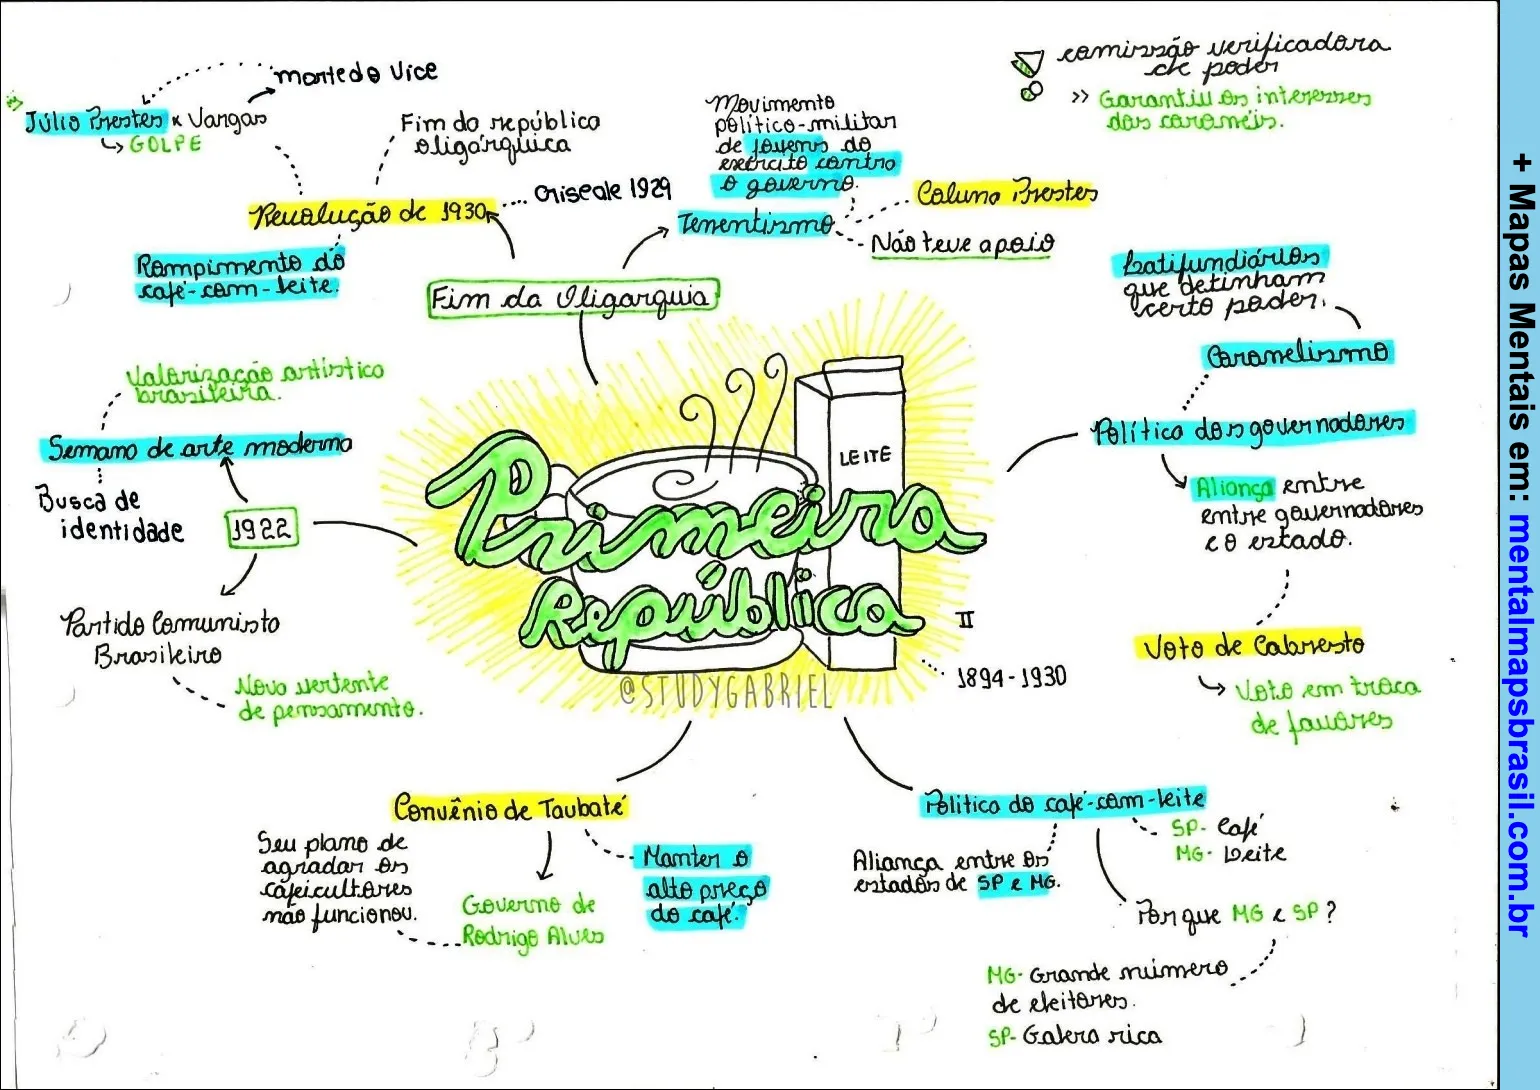 morte do Vice
Júlio Prestes x Vargas
GOLPE
Fim do república
oligárquica
Revolução de 1930
Crise de 1929
Rompimento do
café-com-leite.
Fim da Oligarquia
Movimento
político-militar
de jovens do
exército contra
o governo.
Tenentismo
Coluna Prestes
Não teve apoio
comissão verificadora
de poder
>> Garantiu os interesses
dos coronéis.
Latifundiários
que detinham
certo poder.
Coronelismo
Política dos governadores
Aliança entre
entre governadores
e o estado.
Voto de Cabresto
Voto em troca
de favores
Valorização artística
brasileira.
Semana de arte moderna
Busca de
identidade
1922
Partido Comunista
Brasileiro
Nova vertente
de pensamento.
LEITE
Primeira
República
II
1894-1930
@STUDYGABRIEL
Convênio de Taubaté
Seu plano de
agradar os
cafeicultores
não funcionou.
Governo de
Rodrigo Alves
Manter o
alto preço
do café.
Política do café-com-leite
SP- Café
MG- Leite
Aliança entre os
estados de SP e MG.
Por que MG e SP?
MG- Grande número
de eleitores.
SP- Galera rica
+ Mapas Mentais em: mentalmapsbrasil.com.br